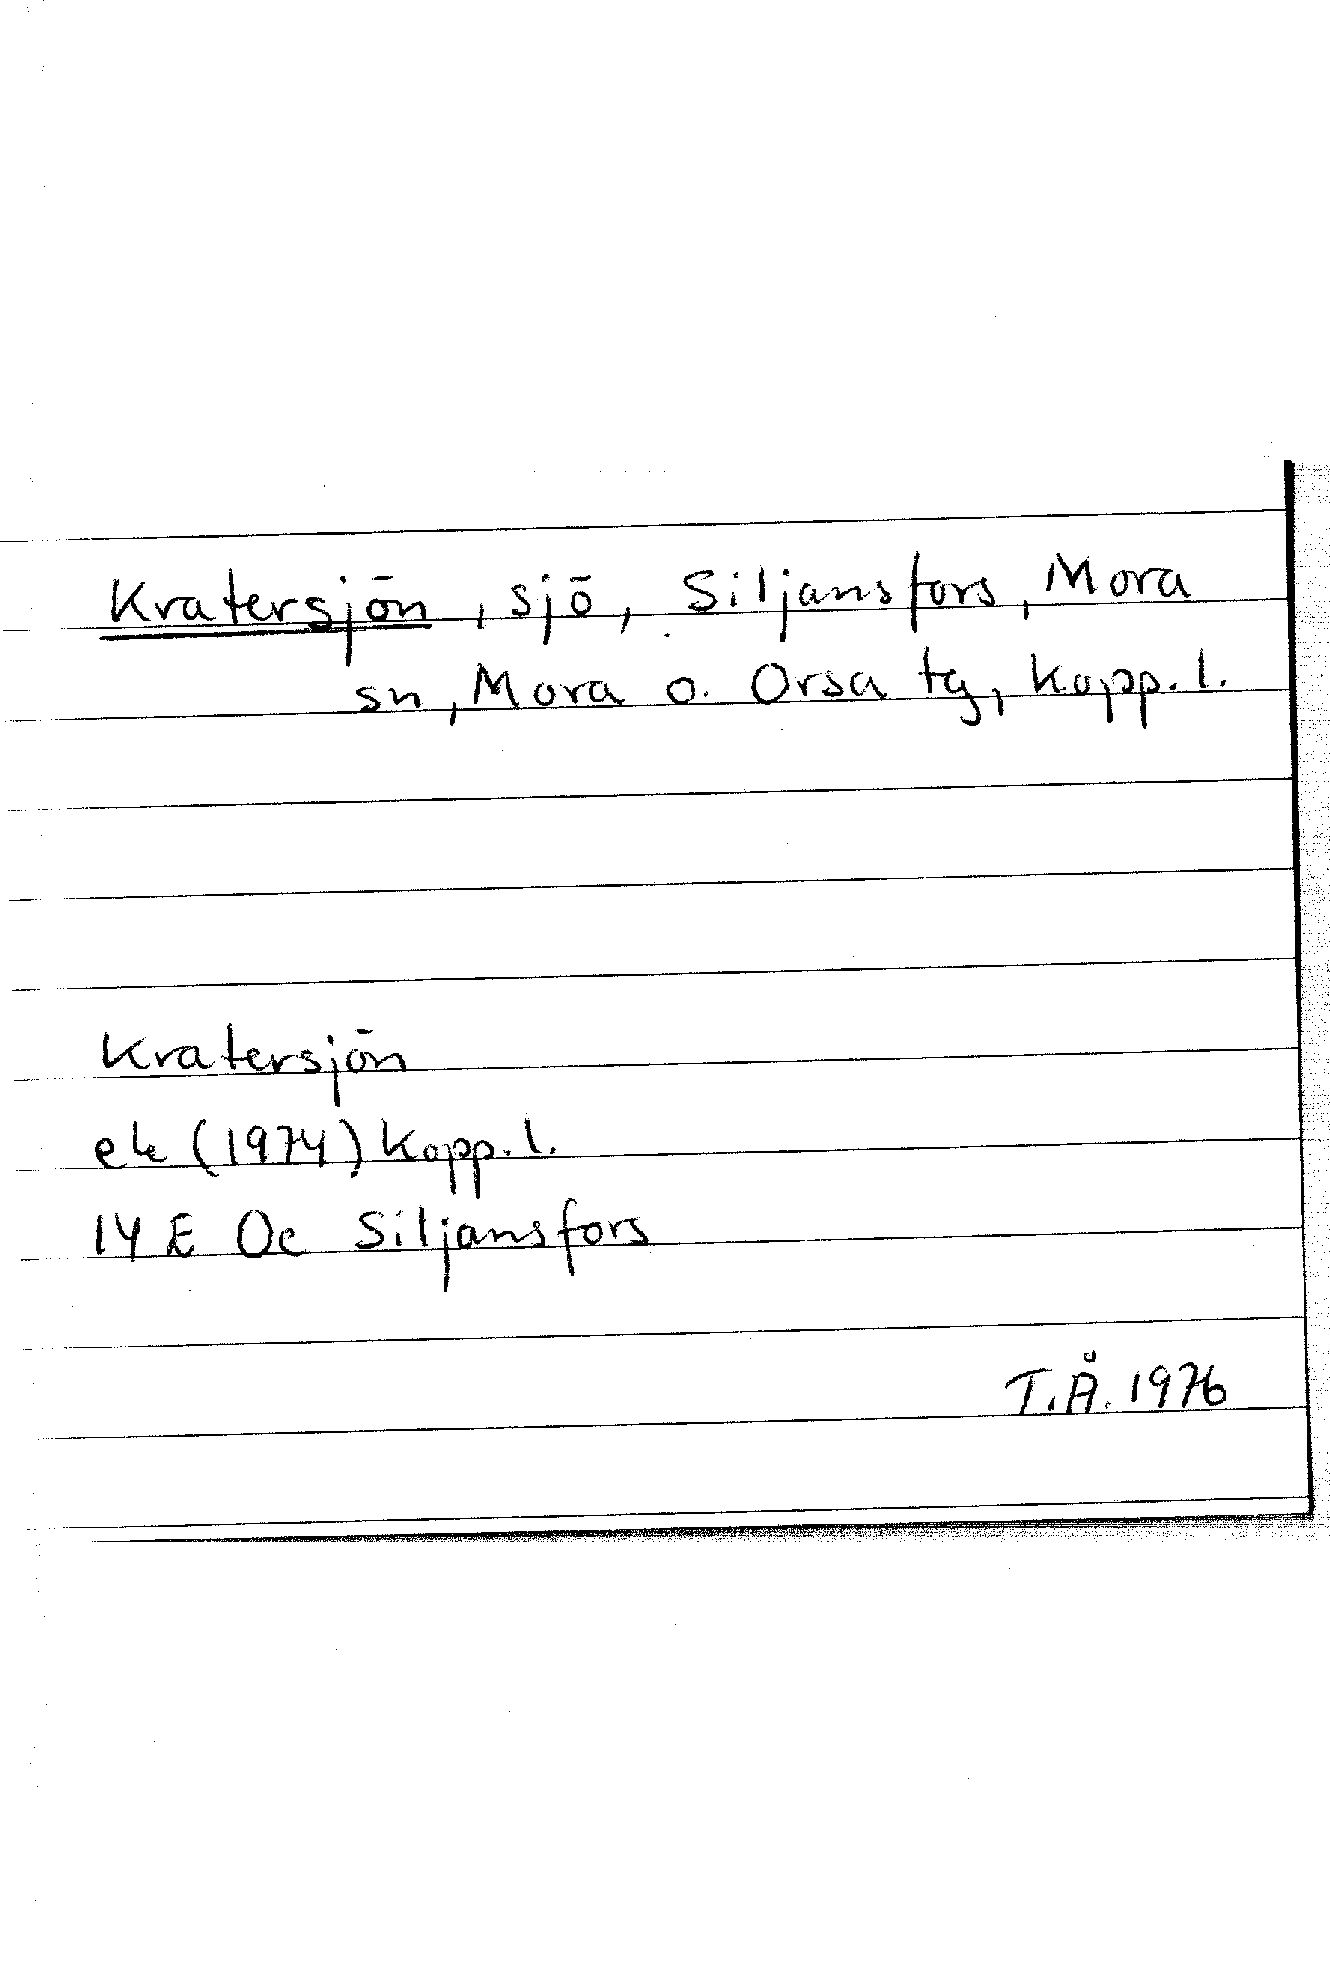 Kratersjön, sjö, Siljansfors, Mora
sn, Mora o. Orsa tg, Kopp. l.
Kratersjön
ek (1974) Kopp. l.
14 E 0c Siljansfors
T.Å. 1976